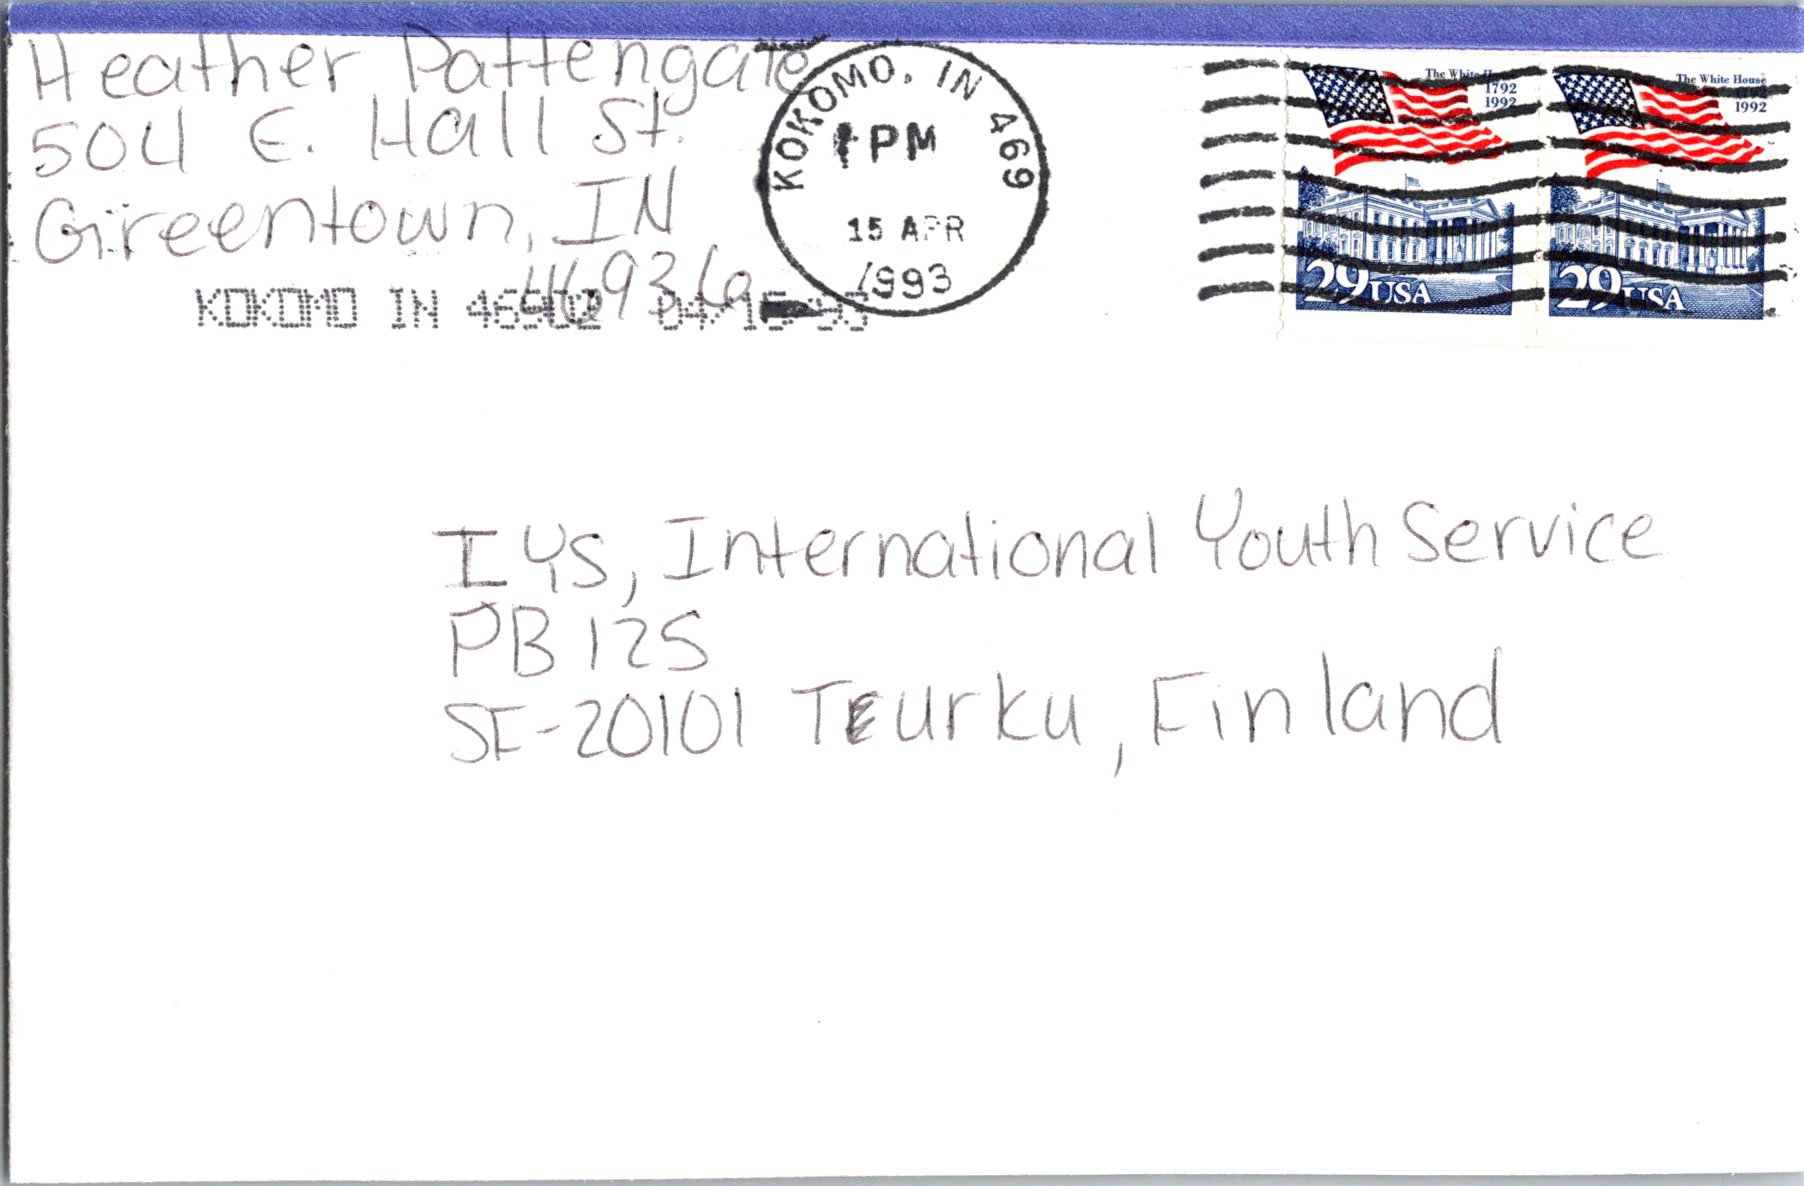 Heather Pattengale
504 E. Hall St.
Greentown, IN
46936
KOKOMO, IN 469
PM
15 APR
1993
KOKOMO IN 46902 04-15-93
The White House
1792
1992
29 USA
The White House
1792
1992
29 USA
IYS, International Youth Service
PB 125
SF-20101 Turku, Finland